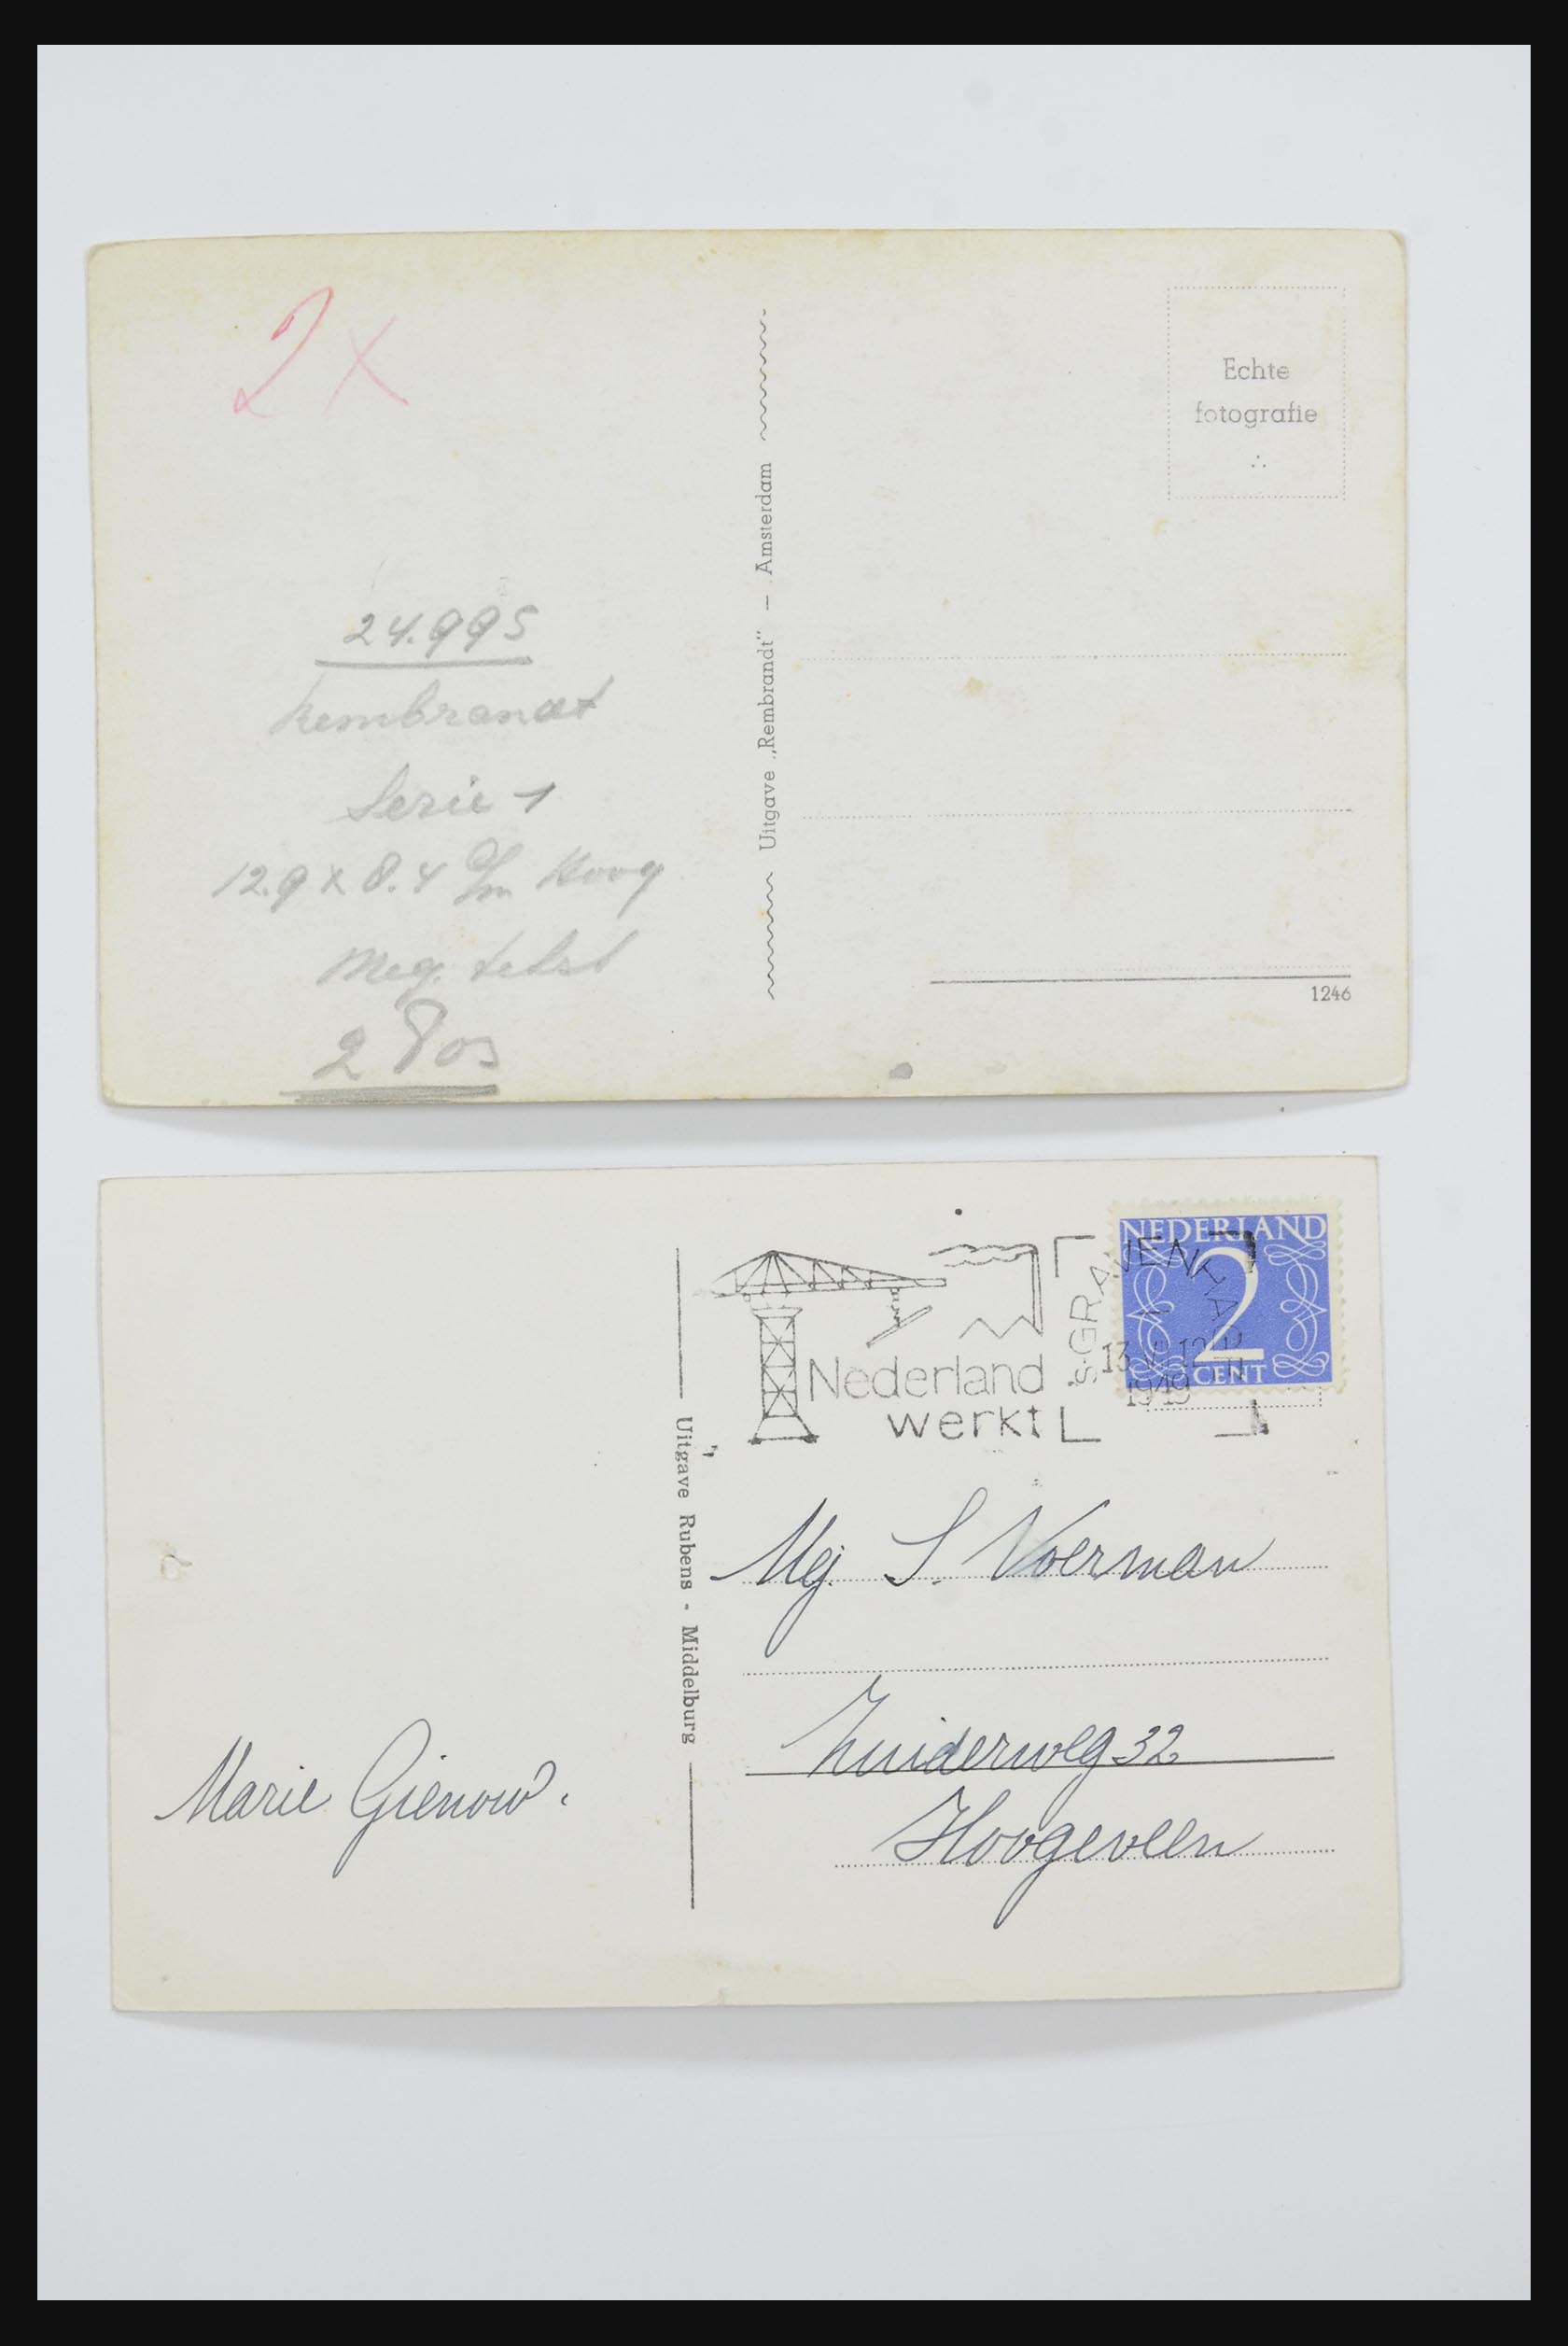 2 X
Echte
fotografie
Uitgave „Rembrandt" – Amsterdam
24.995
Rembrandt
Serie 1
12.9 x 8.4 c/m Hoog
Neg.
2
1246
NEDERLAND
2
CENT
'S-GRAVENHAGE
13 12
1949
Nederland
werkt
Uitgave Rubens - Middelburg
Mej. S. Voerman
Zuiderweg 32
Hoogeveen
Marie Gienow.